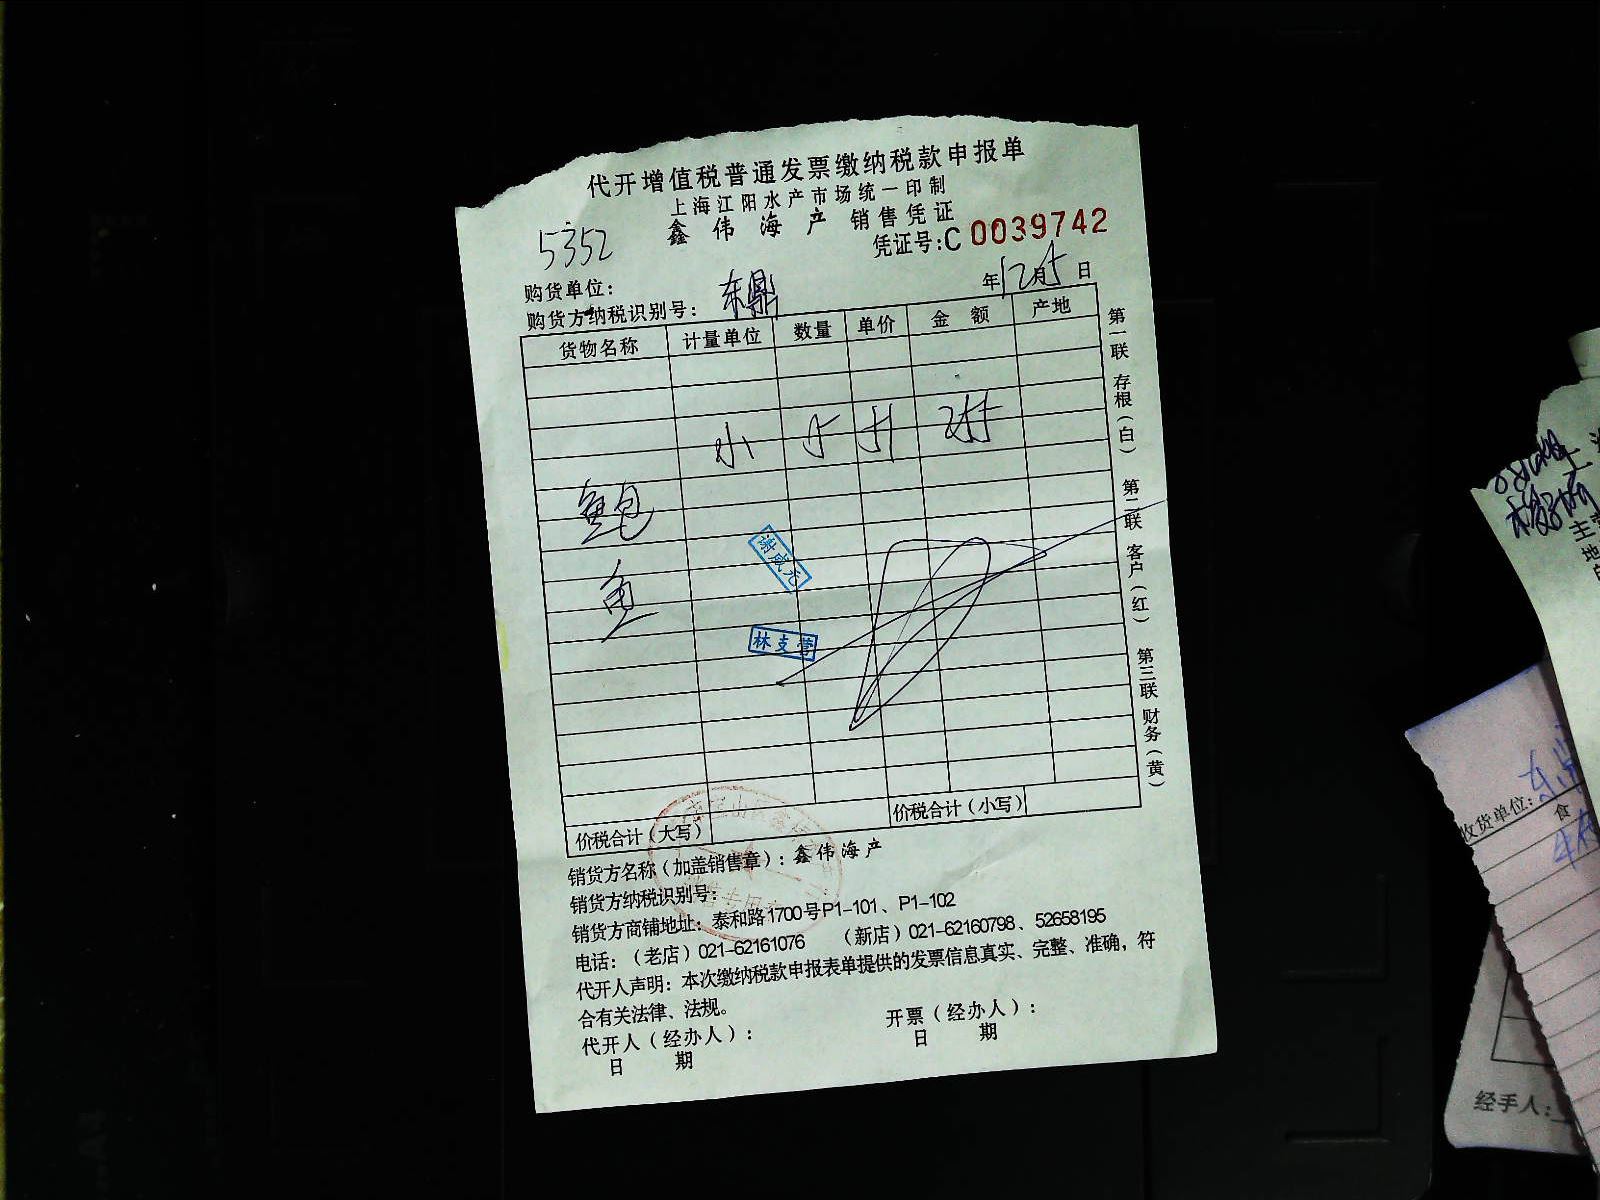 代开增值税普通发票缴纳税款申报单
上海江阳水产市场统一印制
鑫伟海产 销售凭证
5352
凭证号:C 0039742
购货单位:
东鼎
年12月5日
购货方纳税识别号:
货物名称 计量单位 数量 单价 金额 产地
小
鲍
鱼
谢成元
林支营
价税合计(大写) 价税合计(小写)
第一联 存根(白) 第二联 客户(红) 第三联 财务(黄)
销货方名称(加盖销售章):鑫伟海产
销货方纳税识别号:
销货方商铺地址:泰和路1700号P1-101、P1-102
电话:(老店)021-62161076 (新店)021-62160798、52658195
代开人声明:本次缴纳税款申报表单提供的发票信息真实、完整、准确,符
合有关法律、法规。
代开人(经办人): 开票(经办人):
日期 日期
收货单位:
经手人: